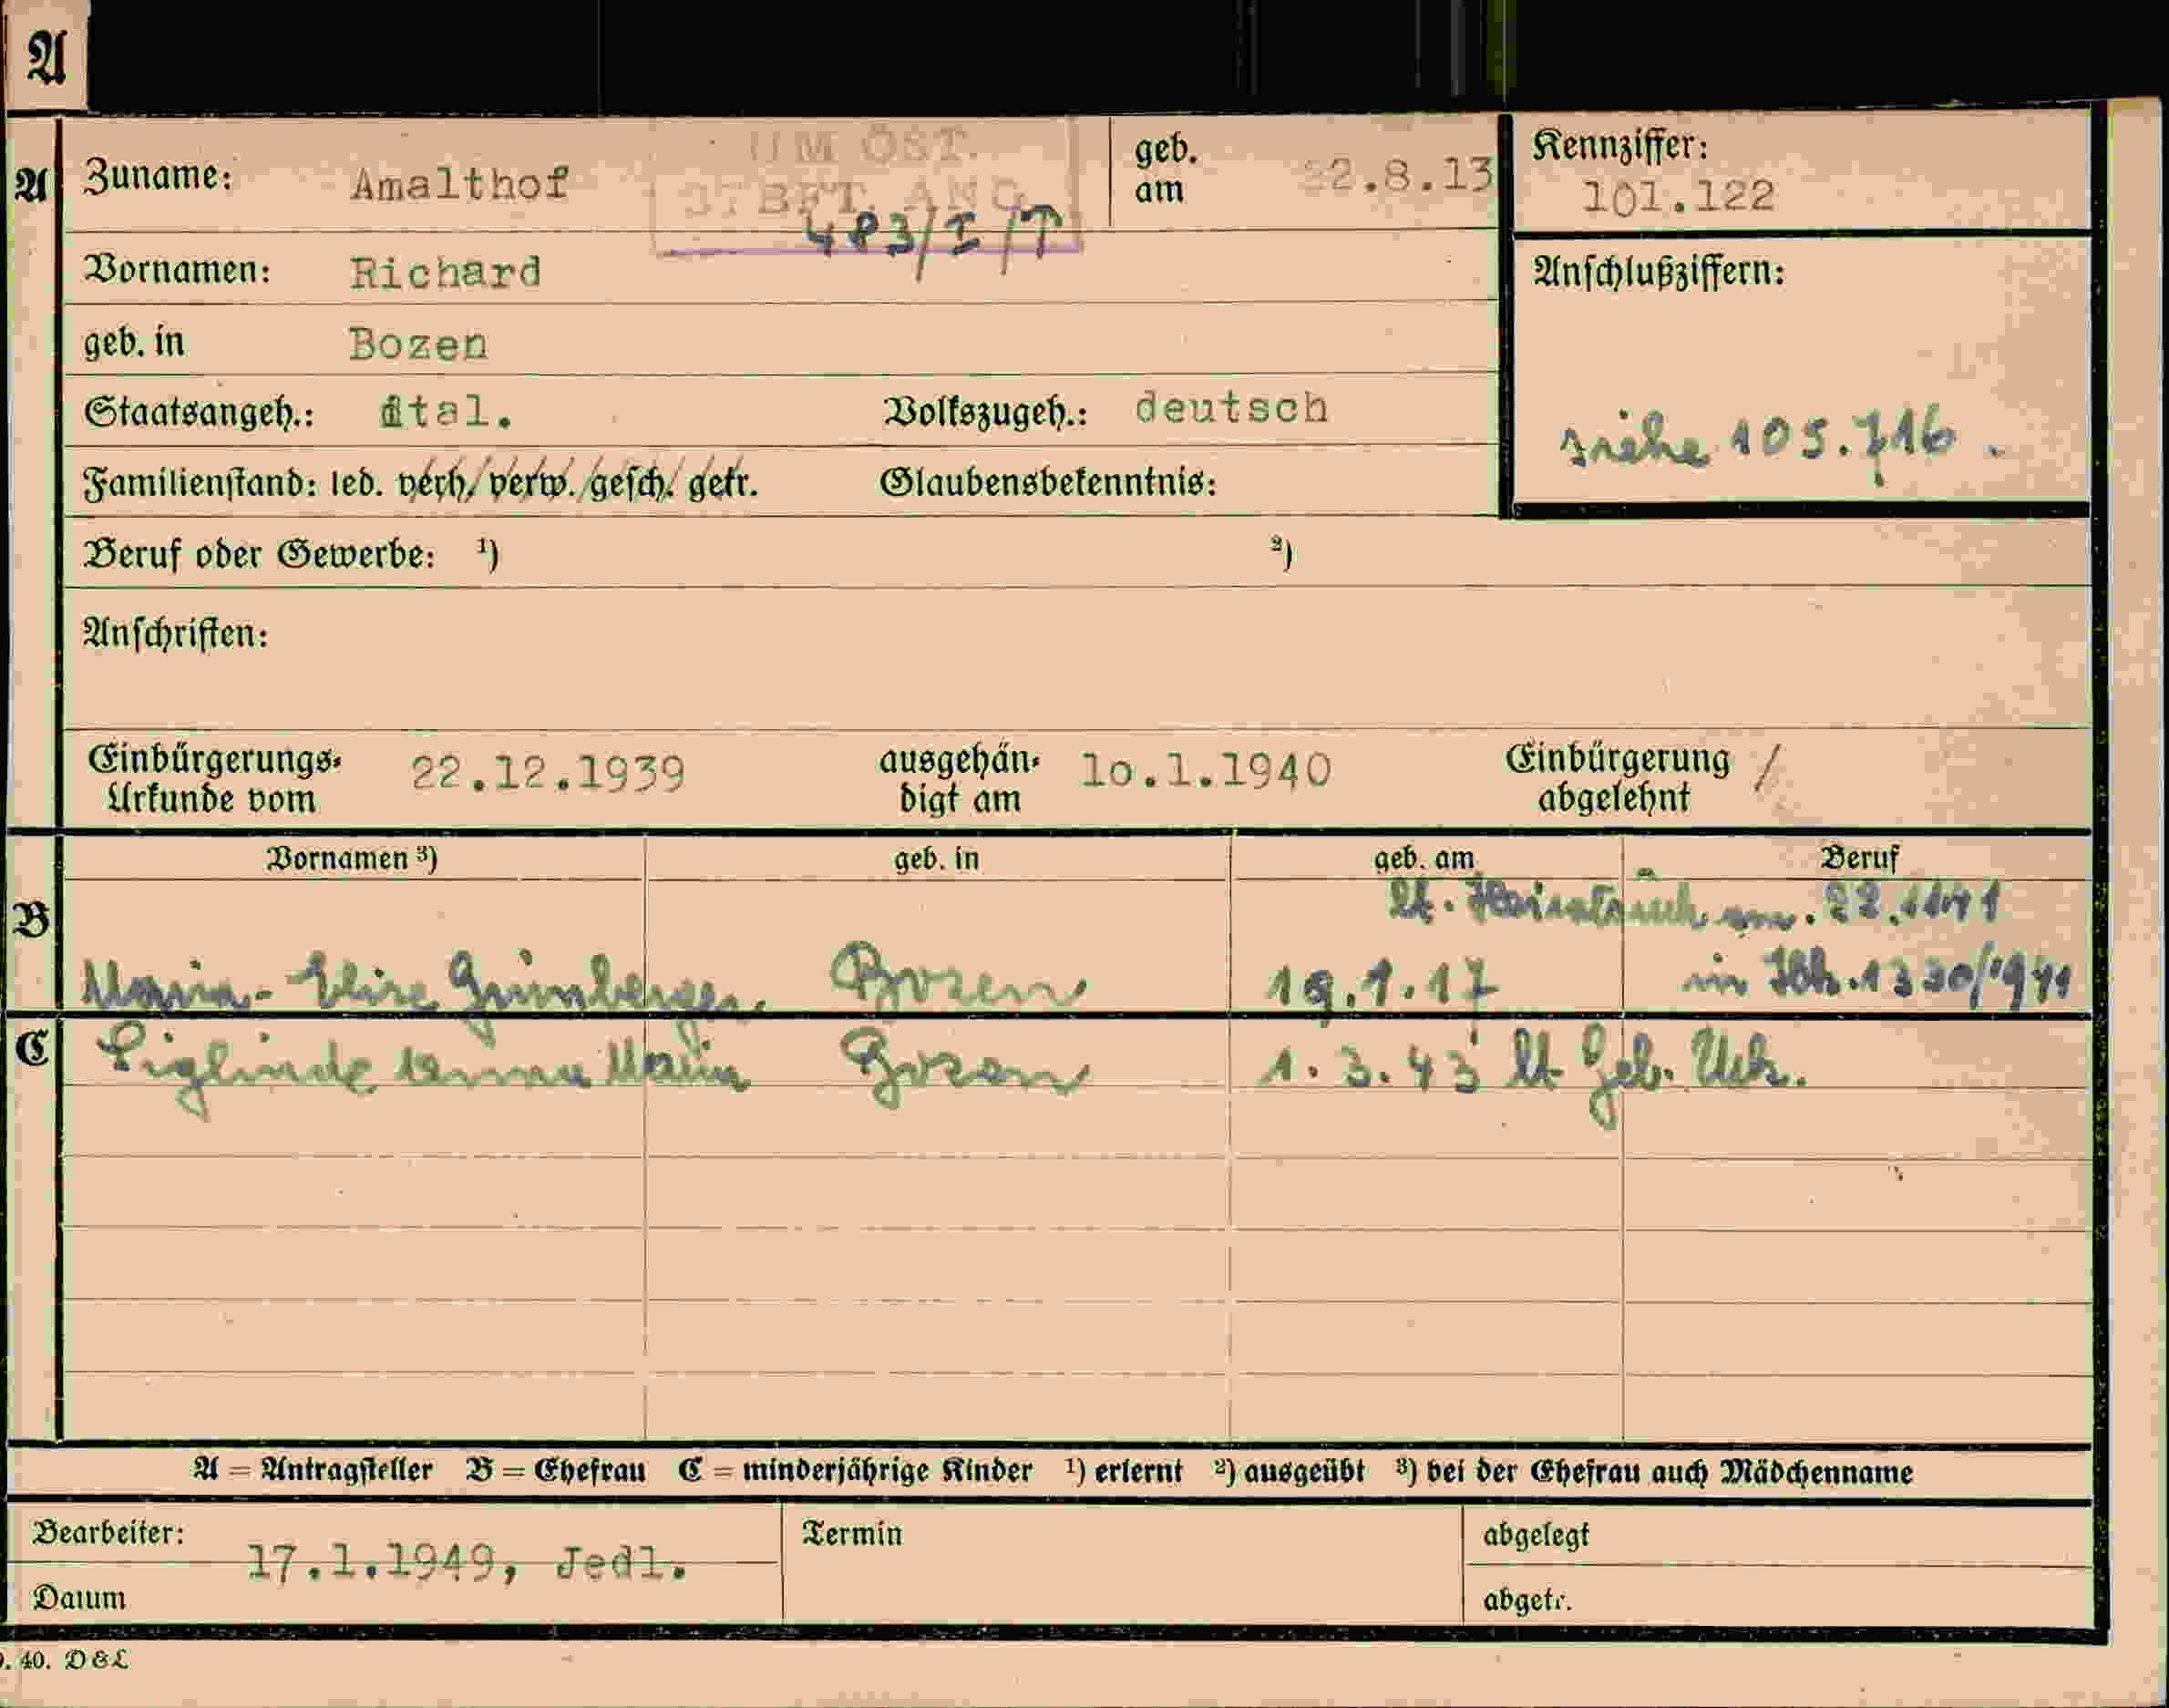 A
A Zuname: Amalthof geb. am 22.8.13 Kennziffer: 101.122
UM ÖST.
STBFT. ANG.
483/I/T
Vornamen: Richard Anschlußziffern:
geb. in Bozen
Staatsangeh.: ital. Volkszugeh.: deutsch
siehe 105.716.
Familienstand: led. verh. verw. gesch. getr. Glaubensbekenntnis:
Beruf oder Gewerbe: ¹) ²)
Anschriften:
Einbürgerungs-Urkunde vom 22.12.1939 ausgehändigt am 10.1.1940 Einbürgerung abgelehnt /
Vornamen ³) geb. in geb. am Beruf
B
lt. am. 22.
Maria - Elise Grünberger Bozen 19.1.17 in 1330/1941
C Siglinde Maria Bozen 1.3.43 lt Geb. Urk.
A = Antragsteller B = Ehefrau C = minderjährige Kinder ¹) erlernt ²) ausgeübt ³) bei der Ehefrau auch Mädchenname
Bearbeiter: Termin abgelegt
17.1.1949, Jedl.
Datum abgetr.
40. D&L